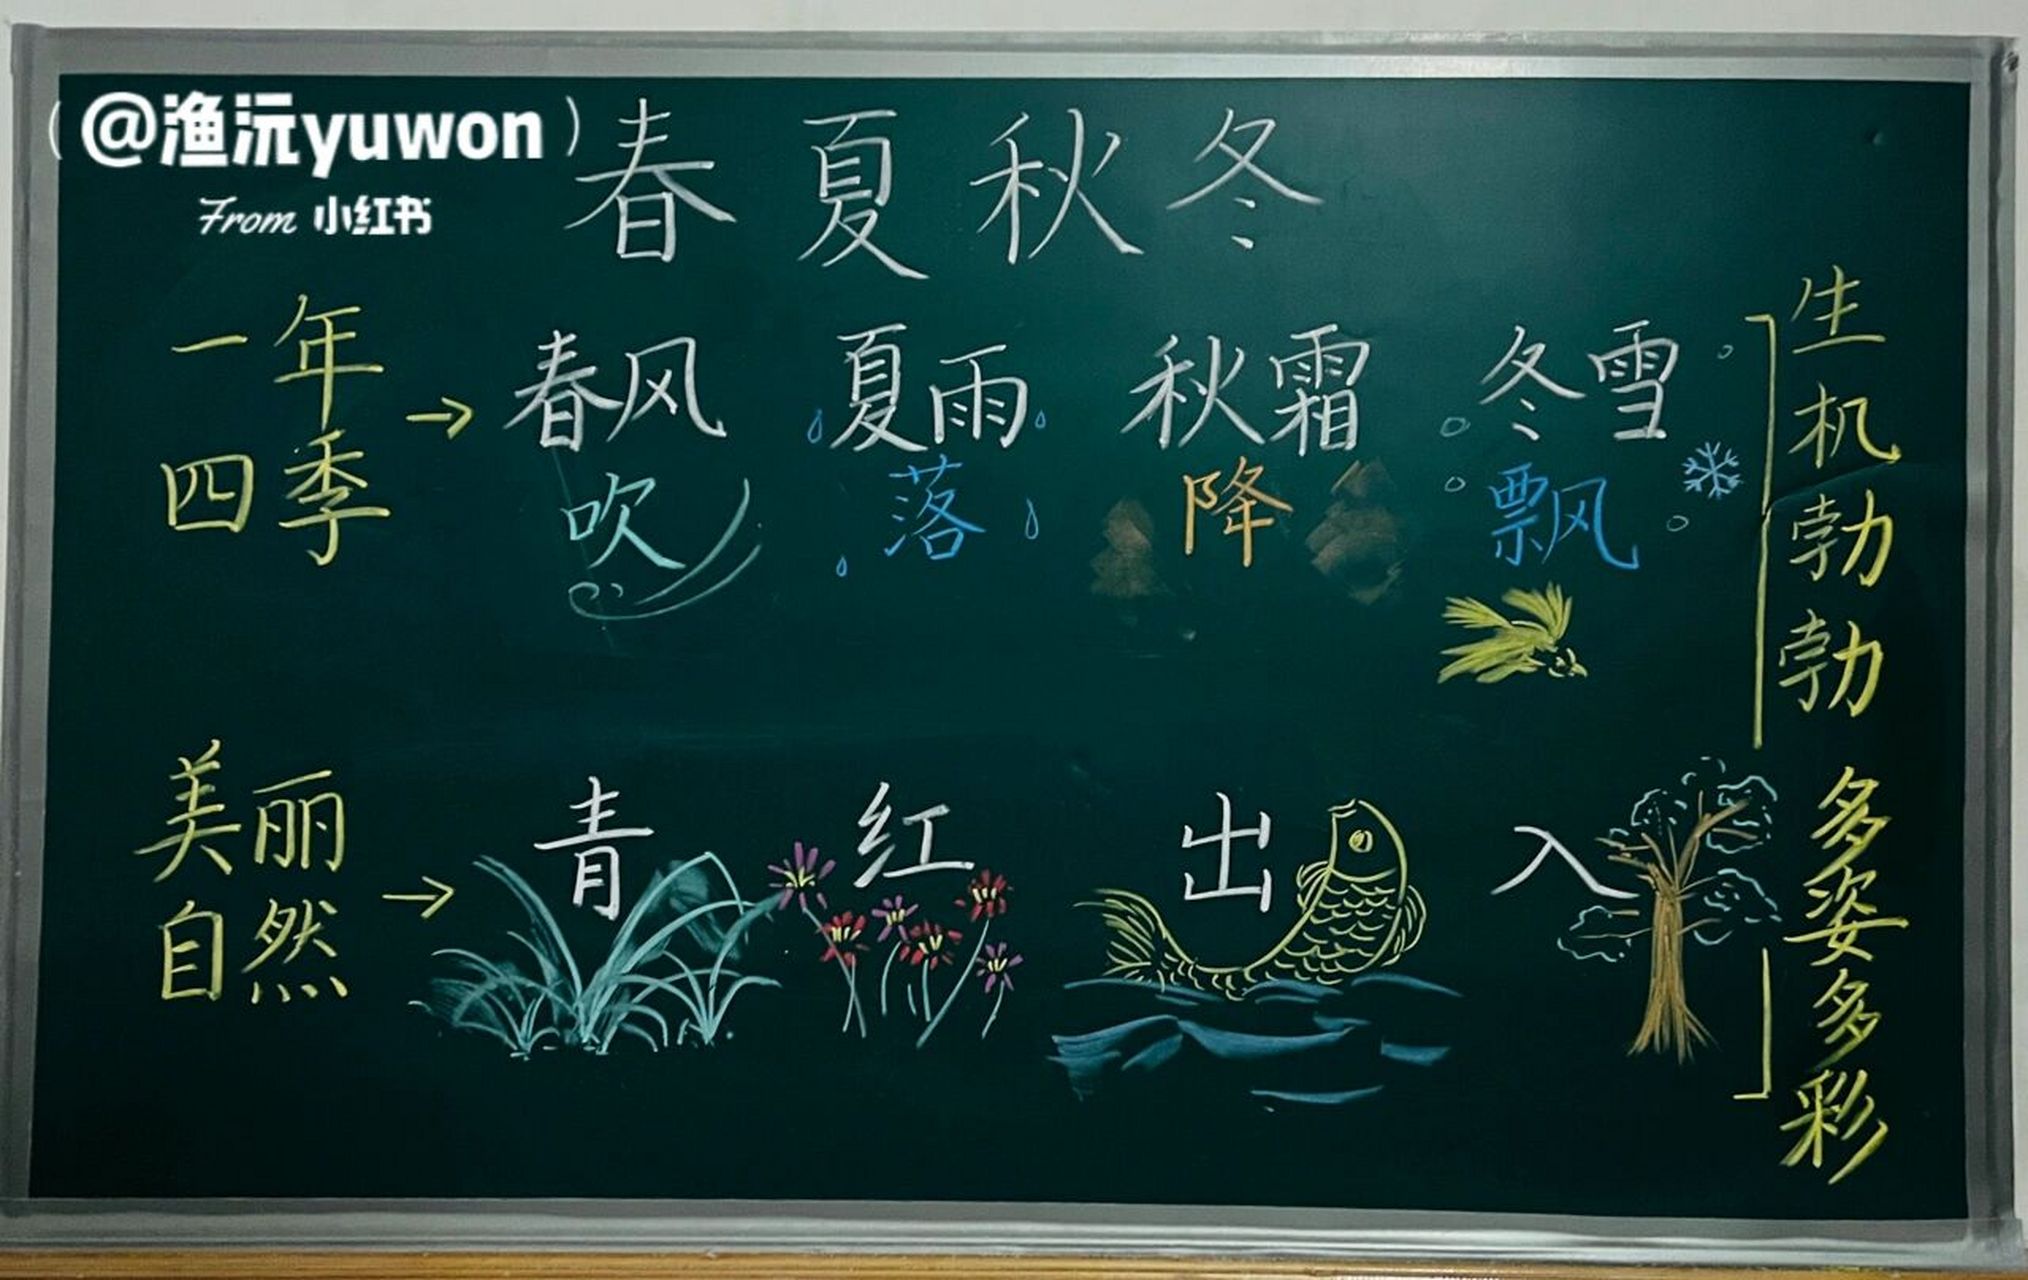 (@渔沅yuwon)
From 小红书
春夏秋冬
一年
四季
→
春风 夏雨 秋霜 冬雪
吹 落 降 飘
美丽
自然
→
青 红 出 入
生机勃勃
多姿多彩